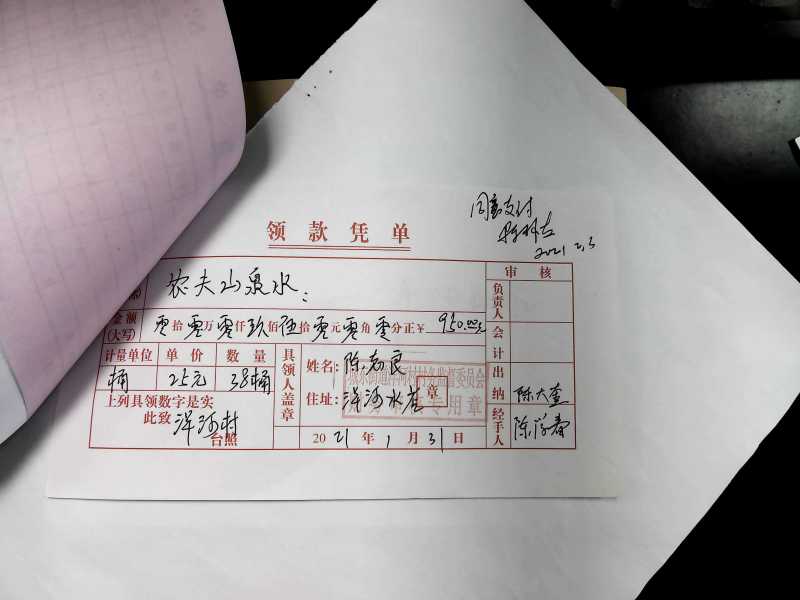 同意支付
2021.2.3
领款凭单
审核
农夫山泉水:
负责人
金额
(大写)
零拾零万零仟玖佰伍拾零元零角零分正¥950.00元
会计
计量单位 单价 数量
桶 25元 38桶
具领人盖章
姓名:陈志良
住址:洋河水崖
章
村务监督委员会
专用章
出纳
陈大查
上列具领数字是实
此致 洋河村
台照
2021年1月31日
经手人
陈学春